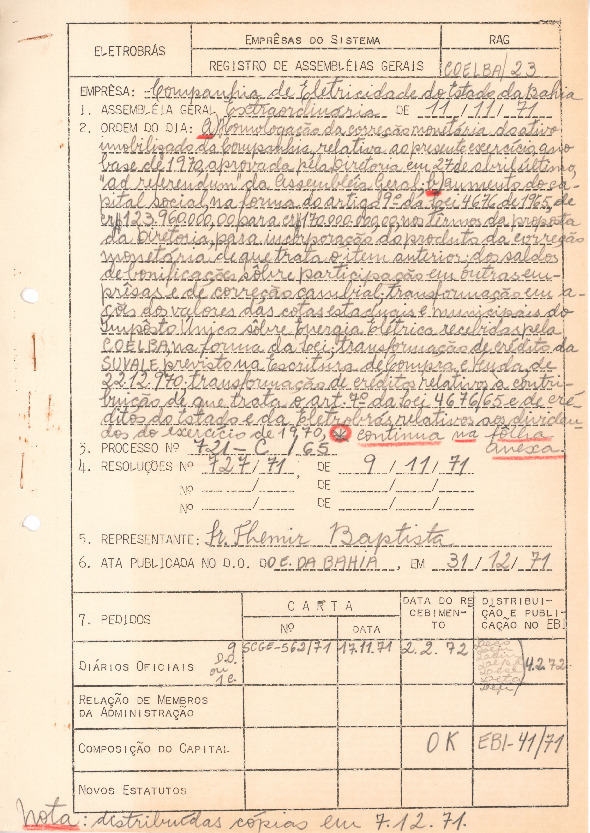 ELETROBRÁS
EMPRÊSAS DO SISTEMA
RAG
REGISTRO DE ASSEMBLÉIAS GERAIS
COELBA/23
EMPRÊSA: Companhia de Eletricidade do Estado da Bahia
1. ASSEMBLÉIA GERAL Extraordinária DE 11/11/71
2. ORDEM DO DIA: a) Homologação da correção monetária do ativo
imobilizado da Companhia, relativa ao presente exercício, ano
base de 1970, aprovada pela Diretoria em 27 de abril último,
"ad referendum" da Assembléia Geral; b) aumento do ca-
pital social, na forma do artigo 9º da lei 4676 de 1965, de
cr$123.960.000,00 para cr$170.000.000,00, nos têrmos da proposta
da Diretoria, para incorporação do produto da correção
monetária de que trata o item anterior, dos saldos
de bonificações sôbre participação em outras em-
prêsas e de correção cambial; transformação em a-
ções dos valores das cotas estaduais e municipais do
Impôsto Único sôbre Energia Elétrica recebidas pela
COELBA, na forma da lei; transformação de crédito da
SUVALE previsto na Escritura de Compra e Venda de
22.12.970; transformação de créditos relativo a contri-
buição de que trata o art. 7º da lei 4676/65 e de cré-
ditos do Estado e da Eletrobrás relativos ao dividen-
dos do exercício de 1970, continua na fôlha
anexa.
3. PROCESSO Nº 721-C/65
4. RESOLUÇÕES Nº 727/71, DE 9/11/71
Nº ____/____ DE ____/____/____
Nº ____/____ DE ____/____/____
5. REPRESENTANTE: Sr. Themir Baptista
6. ATA PUBLICADA NO D.O. DO E. DA BAHIA, EM 31/12/71
7. PEDIDOS
CARTA
Nº
DATA
DATA DO RE
CEBIMEN-
TO
DISTRIBUI-
ÇÃO E PUBLI-
CAÇÃO NO EBI
DIÁRIOS OFICIAIS
9
D.O.
ou
1 c.
SCGE-562/71
17.11.71
2.2.72
4.2.72
RELAÇÃO DE MEMBROS
DA ADMINISTRAÇÃO
COMPOSIÇÃO DO CAPITAL
OK
EBI-41/71
NOVOS ESTATUTOS
Nota: distribuídas cópias em 7.12.71.